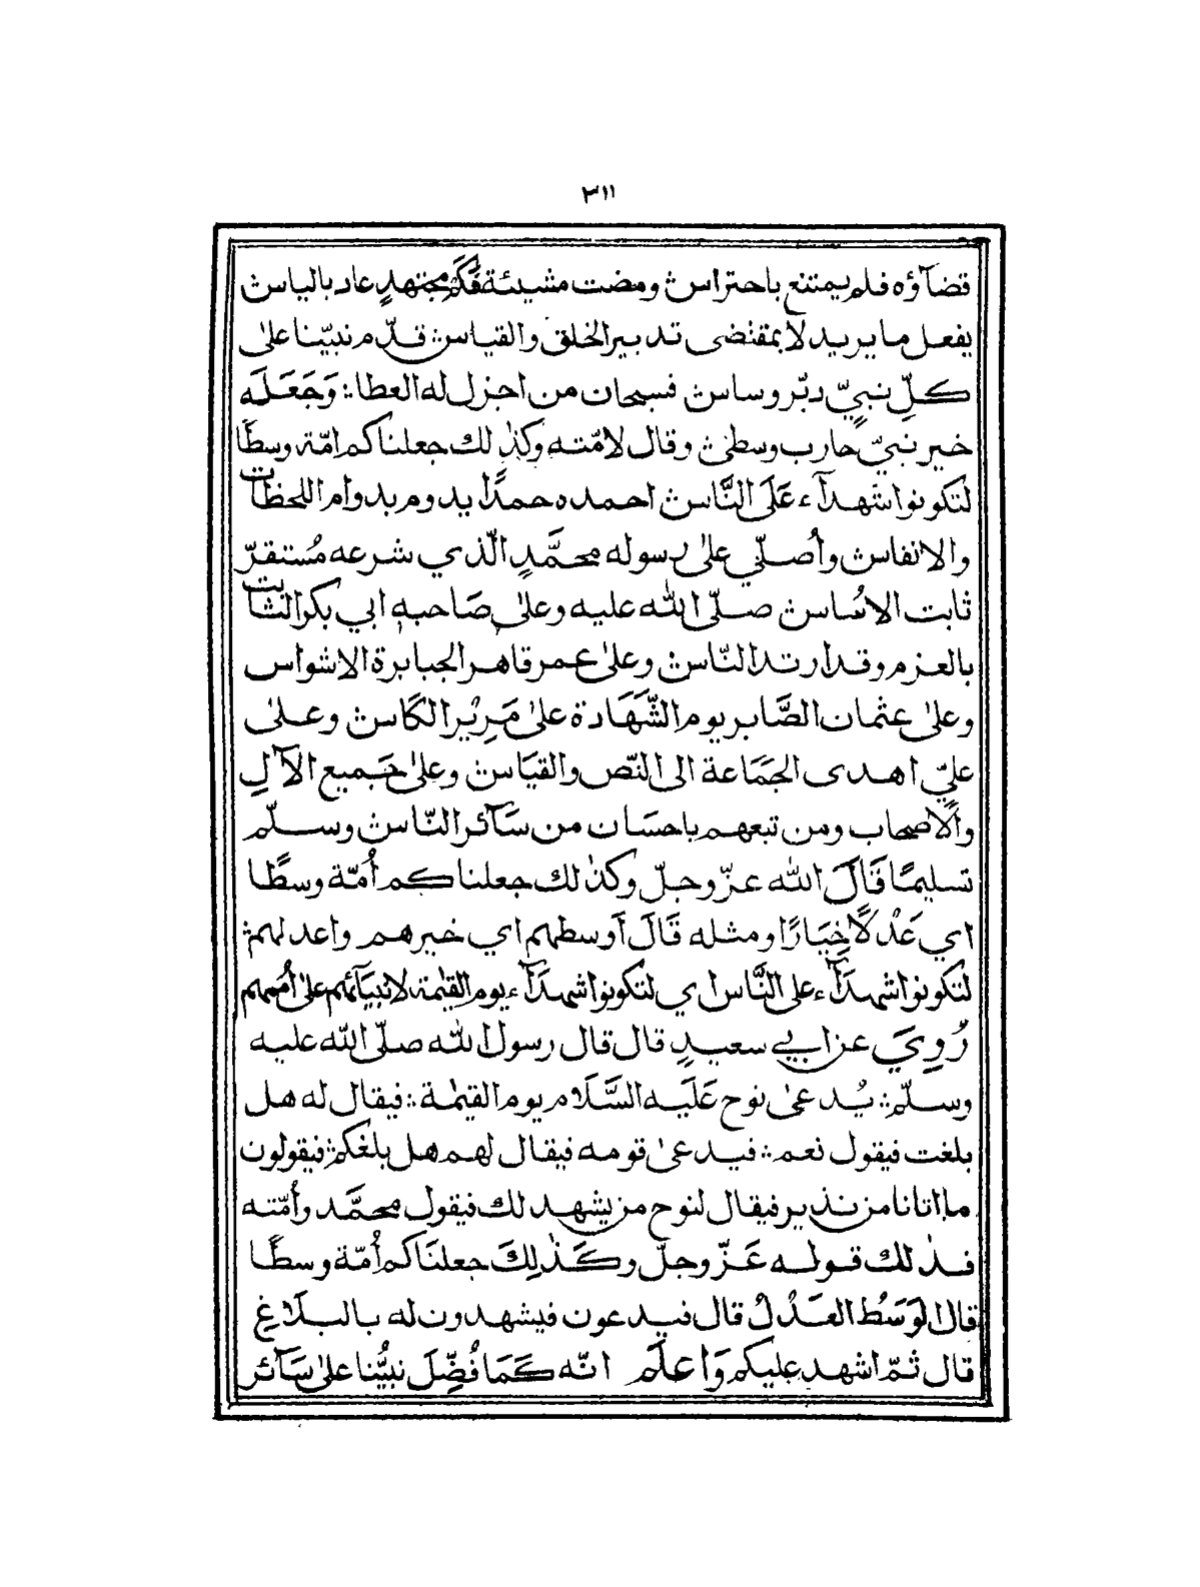 ٣١١
قضآؤه فلم يمتنع باحتراس ومضت مشيئة فكم مجتهدٍ عاد بالياس
يفعل ما يريد لا بمقتضى تدبير الخلق والقياس قدّم نبيّنا على
كلّ نبيّ دبّر وساس فسبحان من اجزل له العطا وَجَعَلَه
خير نبيّ حارب وسطى وقال لامّته وكذلك جعلناكم امّة وسطًا
لتكونوا شهدآء عَلَى النَّاس احمده حمدًا يدوم بدوام اللحظات
والانفاس وأصلّي على رسوله محمَّدٍ الّذي شرعه مُستقرّ
ثابت الاسُاس صلّى الله عليه وعلى صَاحبه ابي بكر الثابت
بالعزم وقد ارتد النّاس وعلى عمر قاهر الجبابرة الاشواس
وعلى عثمان الصَّابر يوم الشَّهَادة على مَرِيْر الكَاس وعلى
عليّ اهدى الجَمَاعة الى النّص والقيَاس وعلى جَميع الآلِ
والأصحاب ومن تبعهم باحسَان من سَآئر النّاس وسلّم
تسليمًا قَالَ الله عزّ وجلّ وكذلك جعلناكم أُمّة وسطًا
اي عَدْلًا خِيَارًا ومثله قَالَ أوسطهم اي خيرهم واعدلهم
لتكونوا شهدَآء على النَّاس اي لتكونوا شهدَآء يوم القيٰمة لانبيآئهم على أممهم
رُوِيَ عن ابي سعيدٍ قال قال رسول الله صلّى الله عليه
وسلّم يُدعىٰ نوح عَلَيه السَّلَام يوم القيٰمة فيقال له هل
بلغت فيقول نعم فيدعىٰ قومه فيقال لهم هل بلغكم فيقولون
ما اتانا من نذير فيقال لنوح من يشهد لك فيقول محمَّد وأمّته
فذلك قوله عَزّ وجلّ وكَذٰلِكَ جعلنَاكم أُمّة وسطًا
قال الوَسَطُ العَدْلُ قال فيدعون فيشهدون له بالبلَاغِ
قال ثمّ اشهد عليكم وَاعلَم انّه كَمَا فُضِّلَ نبيُّنا على سَآئر